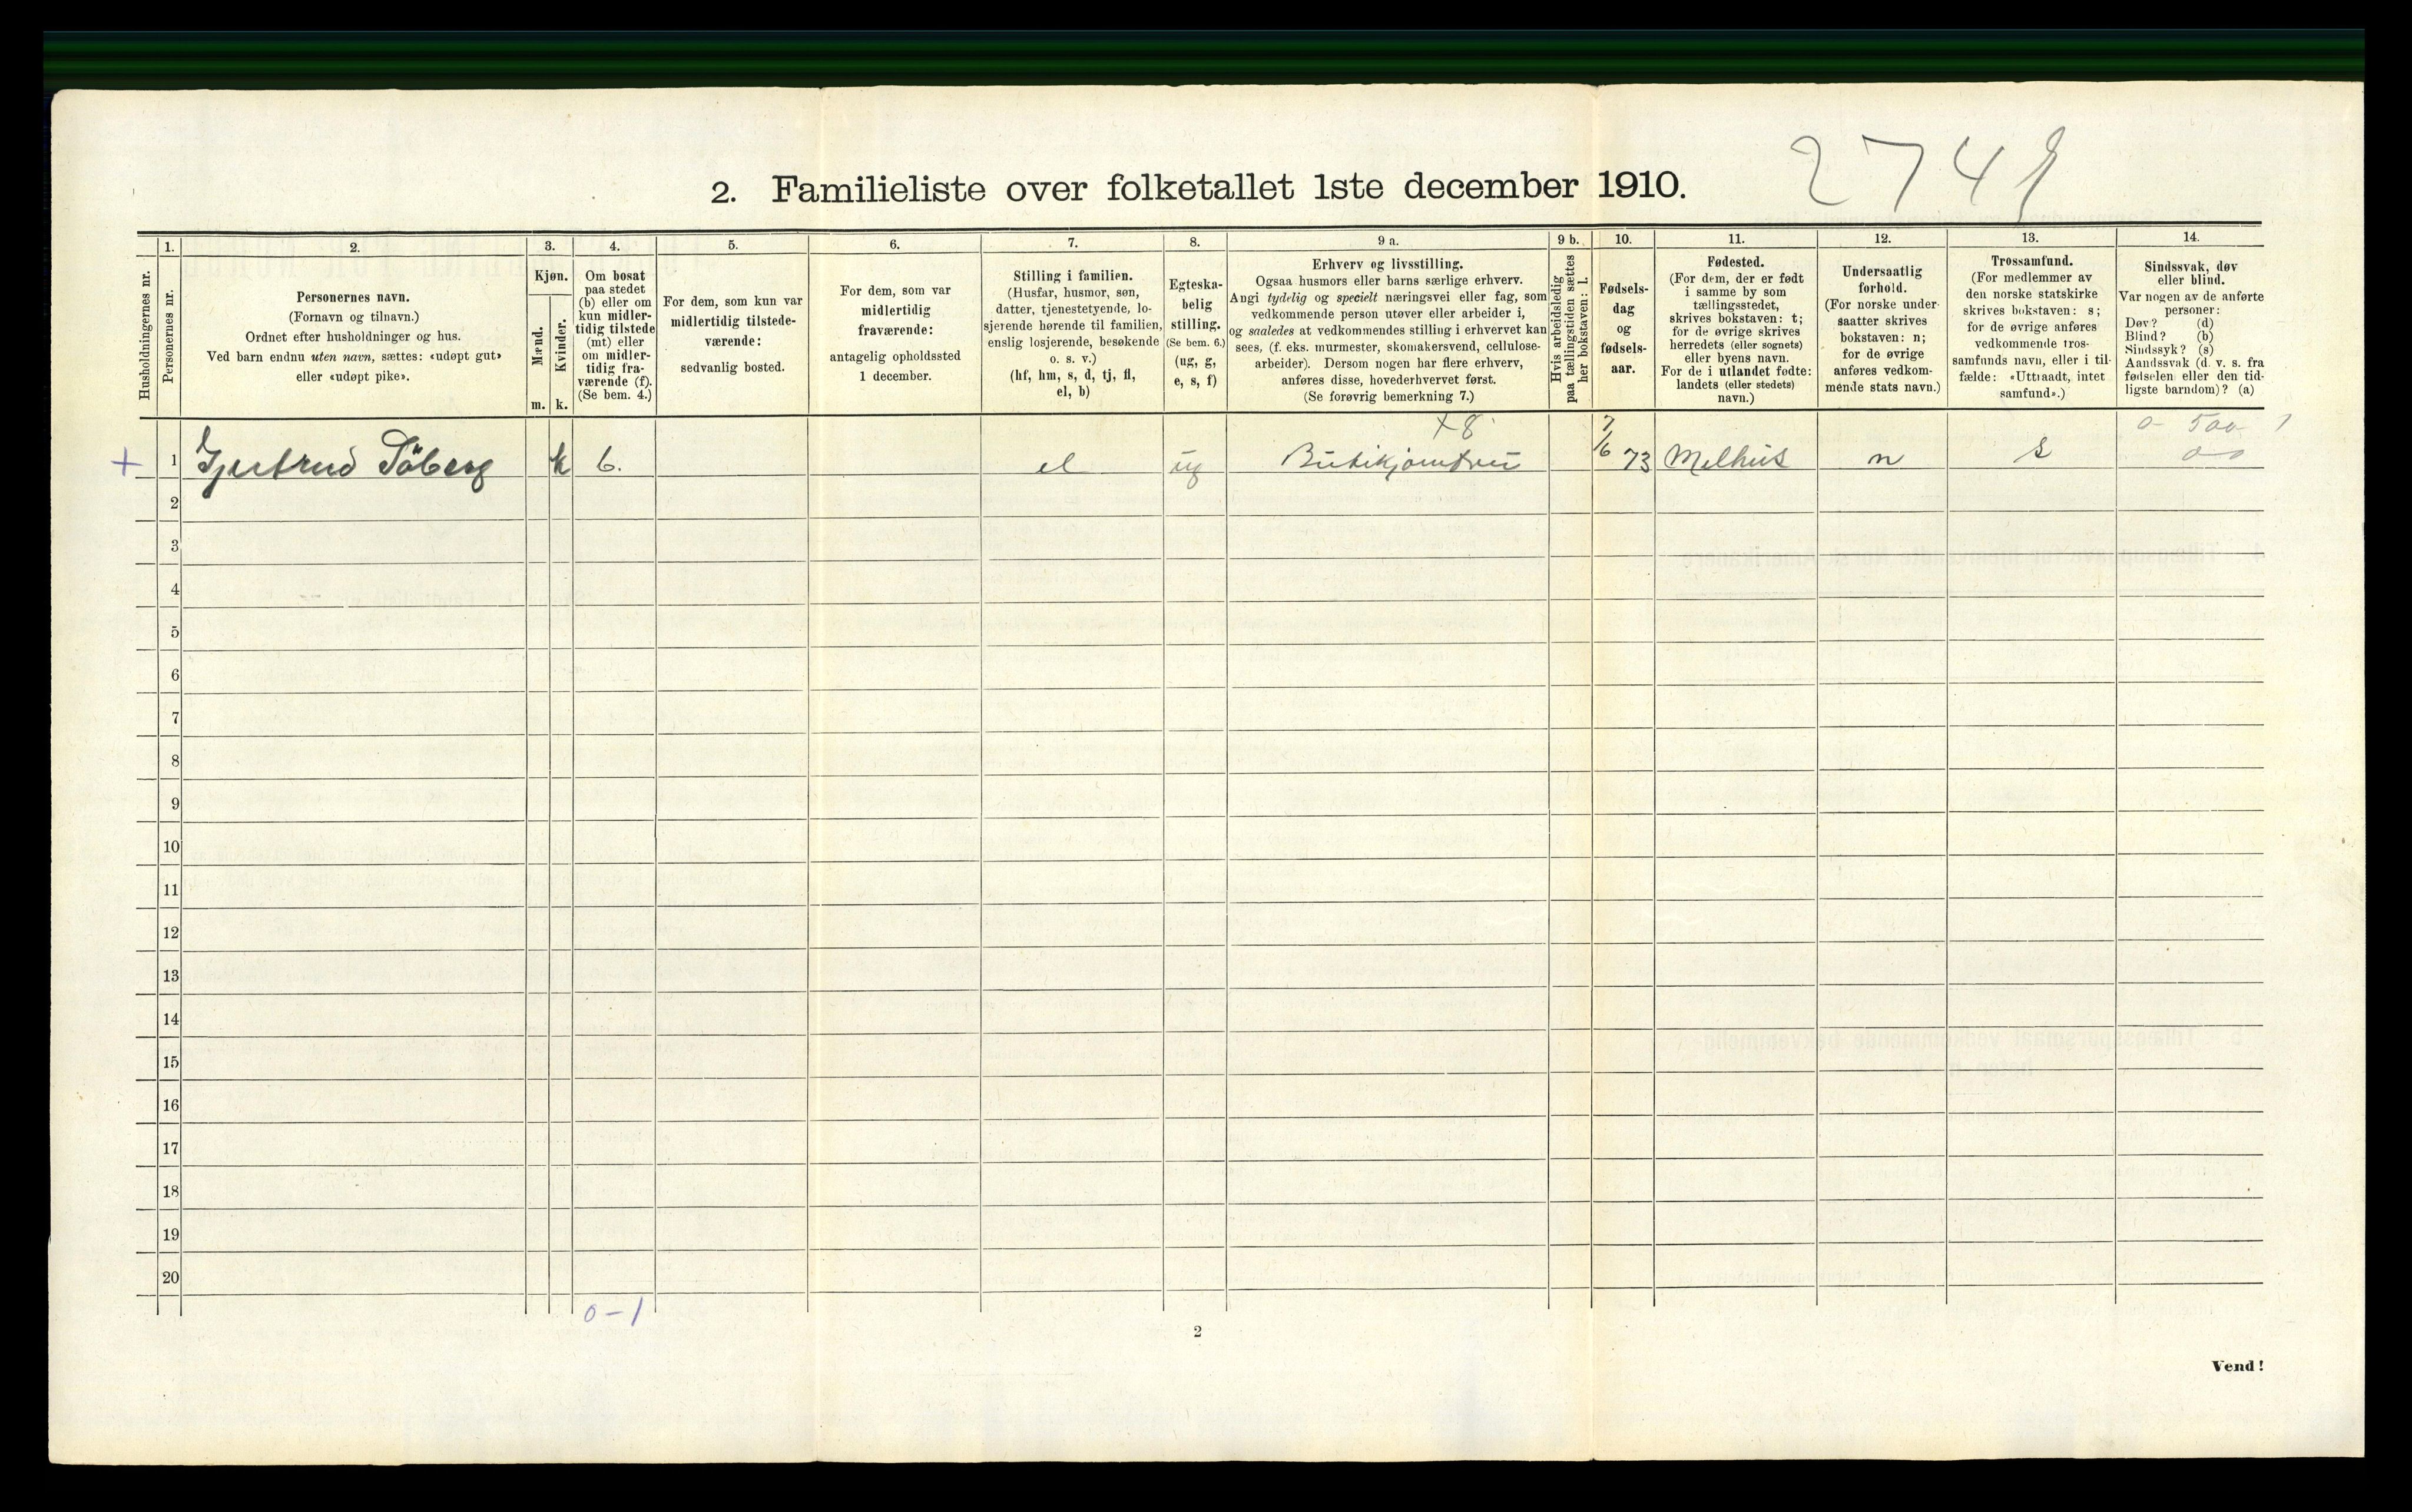 2. Familieliste over folketallet 1ste december 1910.
1. 2. 3. 4. 5. 6. 7. 8. 9 a. 9 b. 10. 11. 12. 13. 14.
Husholdningernes nr.
Personernes nr.
Personernes navn.
(Fornavn og tilnavn.)
Ordnet efter husholdninger og hus.
Ved barn endnu uten navn, sættes: «udøpt gut»
eller «udøpt pike».
Kjøn.
Mænd.
Kvinder.
m. k.
Om bosat
paa stedet
(b) eller om
kun midler-
tidig tilstede
(mt) eller
om midler-
tidig fra-
værende (f).
(Se bem. 4.)
For dem, som kun var
midlertidig tilstede-
værende:
sedvanlig bosted.
For dem, som var
midlertidig
fraværende:
antagelig opholdssted
1 december.
Stilling i familien.
(Husfar, husmor, søn,
datter, tjenestetyende, lo-
sjerende hørende til familien,
enslig losjerende, besøkende
o. s. v.)
(hf, hm, s, d, tj, fl,
el, b)
Egteska-
belig
stilling.
(Se bem. 6.)
(ug, g,
e, s, f)
Erhverv og livsstilling.
Ogsaa husmors eller barns særlige erhverv.
Angi tydelig og specielt næringsvei eller fag, som
vedkommende person utøver eller arbeider i,
og saaledes at vedkommendes stilling i erhvervet kan
sees, (f. eks. murmester, skomakersvend, cellulose-
arbeider). Dersom nogen har flere erhverv,
anføres disse, hovederhvervet først.
(Se forøvrig bemerkning 7.)
Hvis arbeidsledig
paa tællingstiden sættes
her bokstaven: l.
Fødsels-
dag
og
fødsels-
aar.
Fødested.
(For dem, der er født
i samme by som
tællingsstedet,
skrives bokstaven: t;
for de øvrige skrives
herredets (eller sognets)
eller byens navn.
For de i utlandet fødte:
landets (eller stedets)
navn.)
Undersaatlig
forhold.
(For norske under-
saatter skrives
bokstaven: n;
for de øvrige
anføres vedkom-
mende stats navn.)
Trossamfund.
(For medlemmer av
den norske statskirke
skrives bokstaven: s;
for de øvrige anføres
vedkommende tros-
samfunds navn, eller i til-
fælde: «Uttraadt, intet
samfund».)
Sindssvak, døv
eller blind.
Var nogen av de anførte
personer:
Døv? (d)
Blind? (b)
Sindssyk? (s)
Aandssvak (d. v. s. fra
fødselen eller den tid-
ligste barndom)? (a)
+8 0- 500 1
+ 1 Gjertrud Söberg k b. el ug Butikjomfru 7/6 73 Melhus n s
2
3
4
5
6
7
8
9
10
11
12
13
14
15
16
17
18
19
20
0-1
2
Vend!